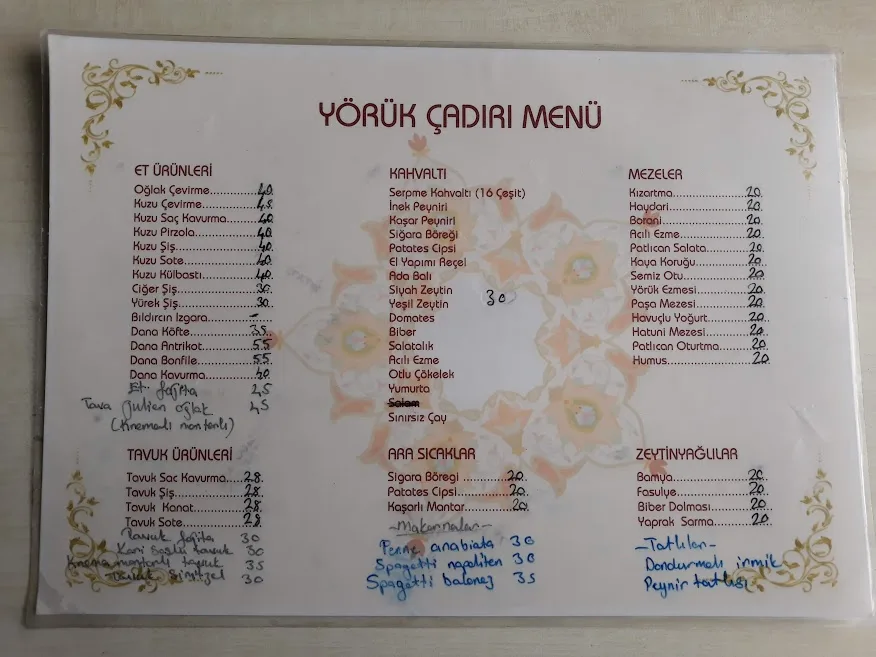 YÖRÜK ÇADIRI MENÜ
ET ÜRÜNLERİ
Oğlak Çevirme..............40
Kuzu Çevirme..............45
Kuzu Saç Kavurma........40
Kuzu Pirzola................40
Kuzu Şiş....................40
Kuzu Sote..................40
Kuzu Külbastı..............40
Ciğer Şiş...................30
Yürek Şiş...................30
Bıldırcın Izgara............-
Dana Köfte.................35
Dana Antrikot..............55
Dana Bonfile...............55
Dana Kavurma.............40
Et fajita 45
Tava Julien oğlak 45
(Kremalı mantarlı)
TAVUK ÜRÜNLERİ
Tavuk Sac Kavurma.....28
Tavuk Şiş..................28
Tavuk Kanat..............28
Tavuk Sote................28
Tavuk fajita 30
Köri Soslu tavuk 30
Krema mantarlı tavuk 35
Tavuk Şinitzel 30
KAHVALTI
Serpme Kahvaltı (16 Çeşit)
İnek Peyniri
Kaşar Peyniri
Sigara Böreği
Patates Cipsi
El Yapımı Reçel
Ada Balı
Siyah Zeytin
30
Yeşil Zeytin
Domates
Biber
Salatalık
Acılı Ezme
Otlu Çökelek
Yumurta
Salam
Sınırsız Çay
ARA SICAKLAR
Sigara Böregi ..........20
Patates Cipsi...........20
Kaşarlı Mantar..........20
-Makarnalar-
Penne arabiata 30
Spagetti napoliten 30
Spagetti bolonez 35
MEZELER
Kızartma..................20
Haydari...................20
Borani....................20
Acılı Ezme...............20
Patlıcan Salata..........20
Kaya Koruğu.............20
Semiz Otu................20
Yörük Ezmesi............20
Paşa Mezesi.............20
Havuçlu Yoğurt..........20
Hatuni Mezesi...........20
Patlıcan Oturtma........20
Humus....................20
ZEYTİNYAĞLILAR
Bamya....................20
Fasulye...................20
Biber Dolması...........20
Yaprak Sarma...........20
-Tatlılar-
Dondurmalı irmik
Peynir tatlısı